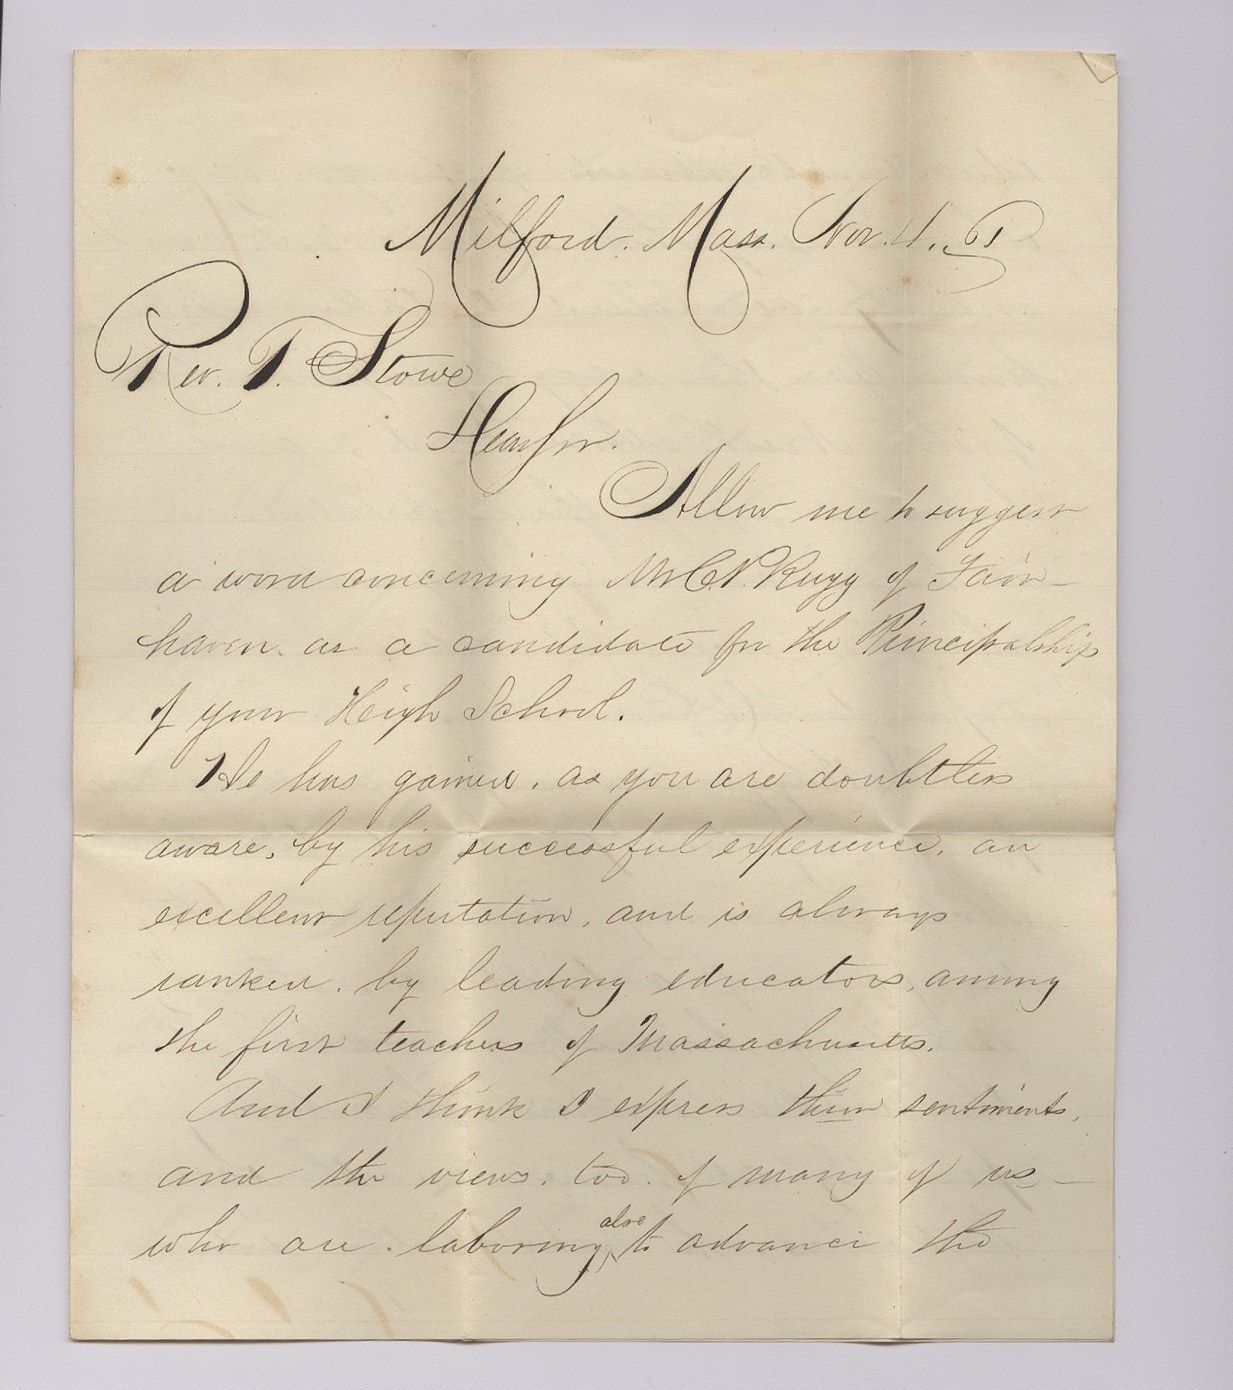 Milford. Mass. Nov. 4.
Rev. T. Stowe
Dear Sir.
Allow me to suggest
a word concerning Mr C. N. Rugg of Fair-
haven. as a candidate for the Principalship
of your High School.
He has gained. as you are doubtless
aware, by his successful experience. an
excellent reputation, and is always
ranked. by leading educators, among
the first teachers of Massachusetts.
And I think I express their sentiments,
and the views. too. of many of us -
who are. laboring also to advance the